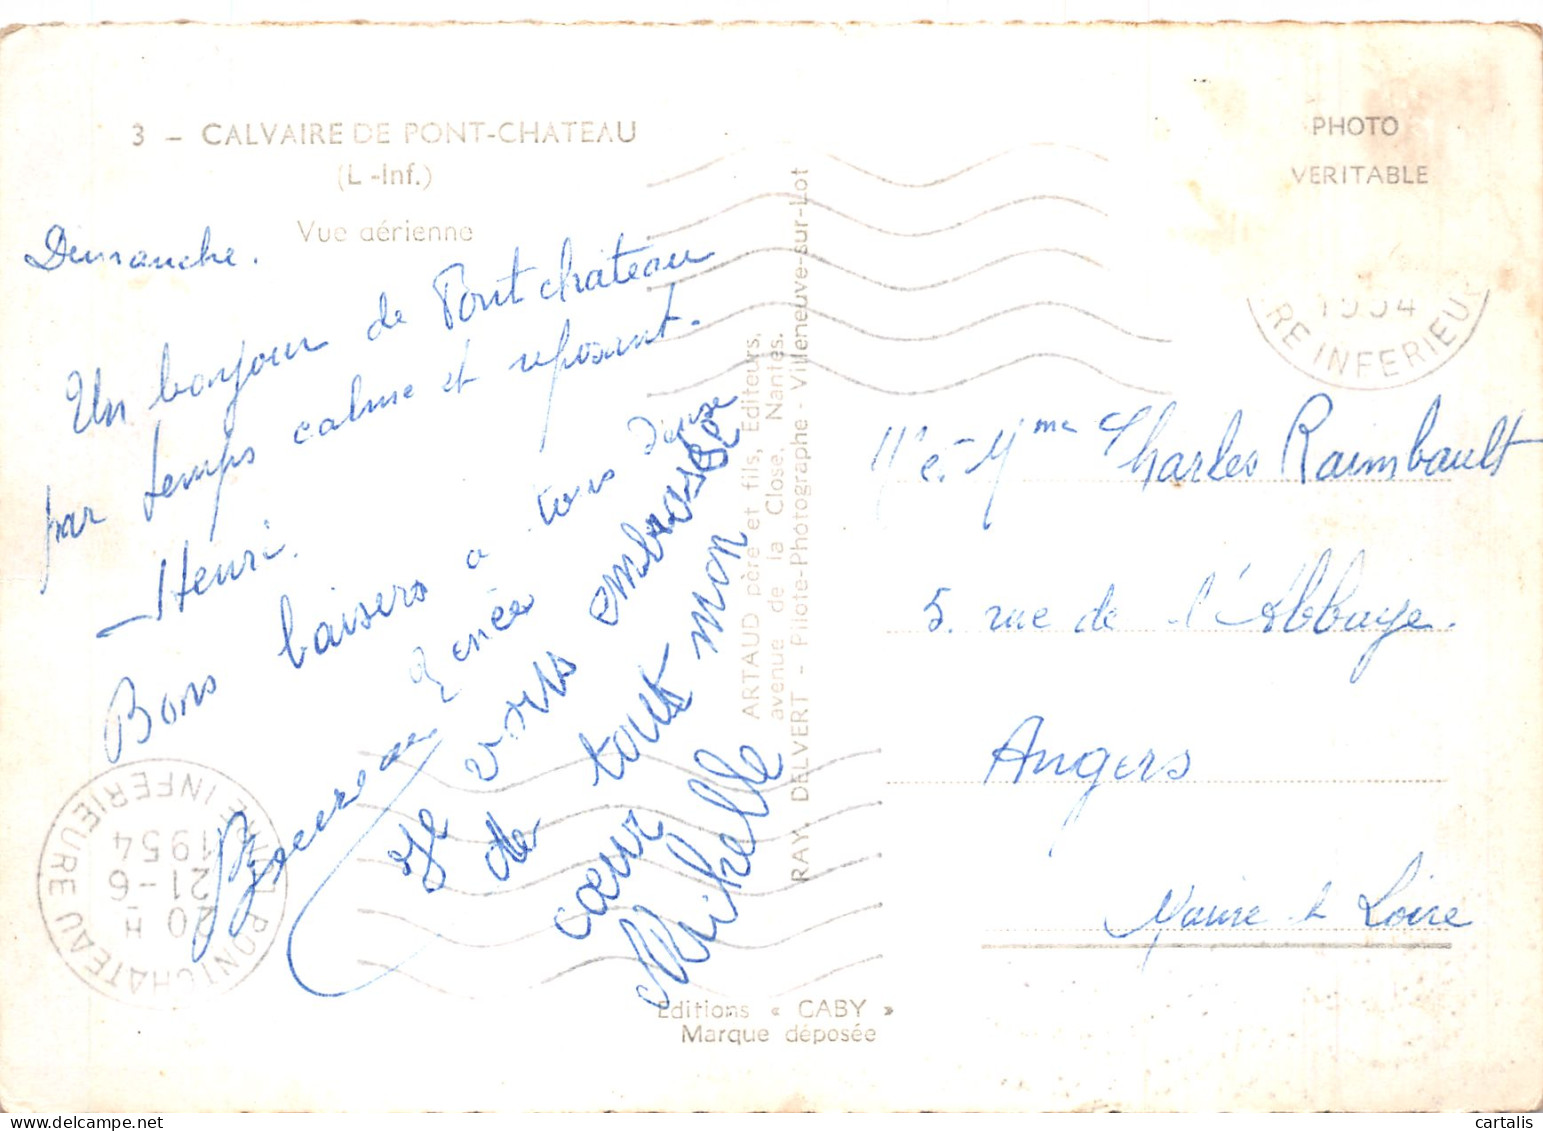 3 - CALVAIRE DE PONT-CHATEAU
(L -Inf.)
Vue aérienne
Dimanche.
Un bonjour de Pontchateau
par temps calme et reposant.
Henri.
Bons baisers a tous deux
Renée
Je vous embrasse
de tout mon
cœur
Michelle
PONTCHATEAU
20 H
21-6
1954
LOIRE INFERIEURE
ARTAUD père et fils, Editeurs,
avenue de la Close, Nantes.
RAY. DELVERT - Pilote-Photographe - Villeneuve-sur-Lot
Editions « GABY »
Marque déposée
PHOTO
VERITABLE
1954
RE INFERIEU
Mr et Mme Charles Raimbault
5. rue de l'Abbaye.
Angers
Maine & Loire
cartalis